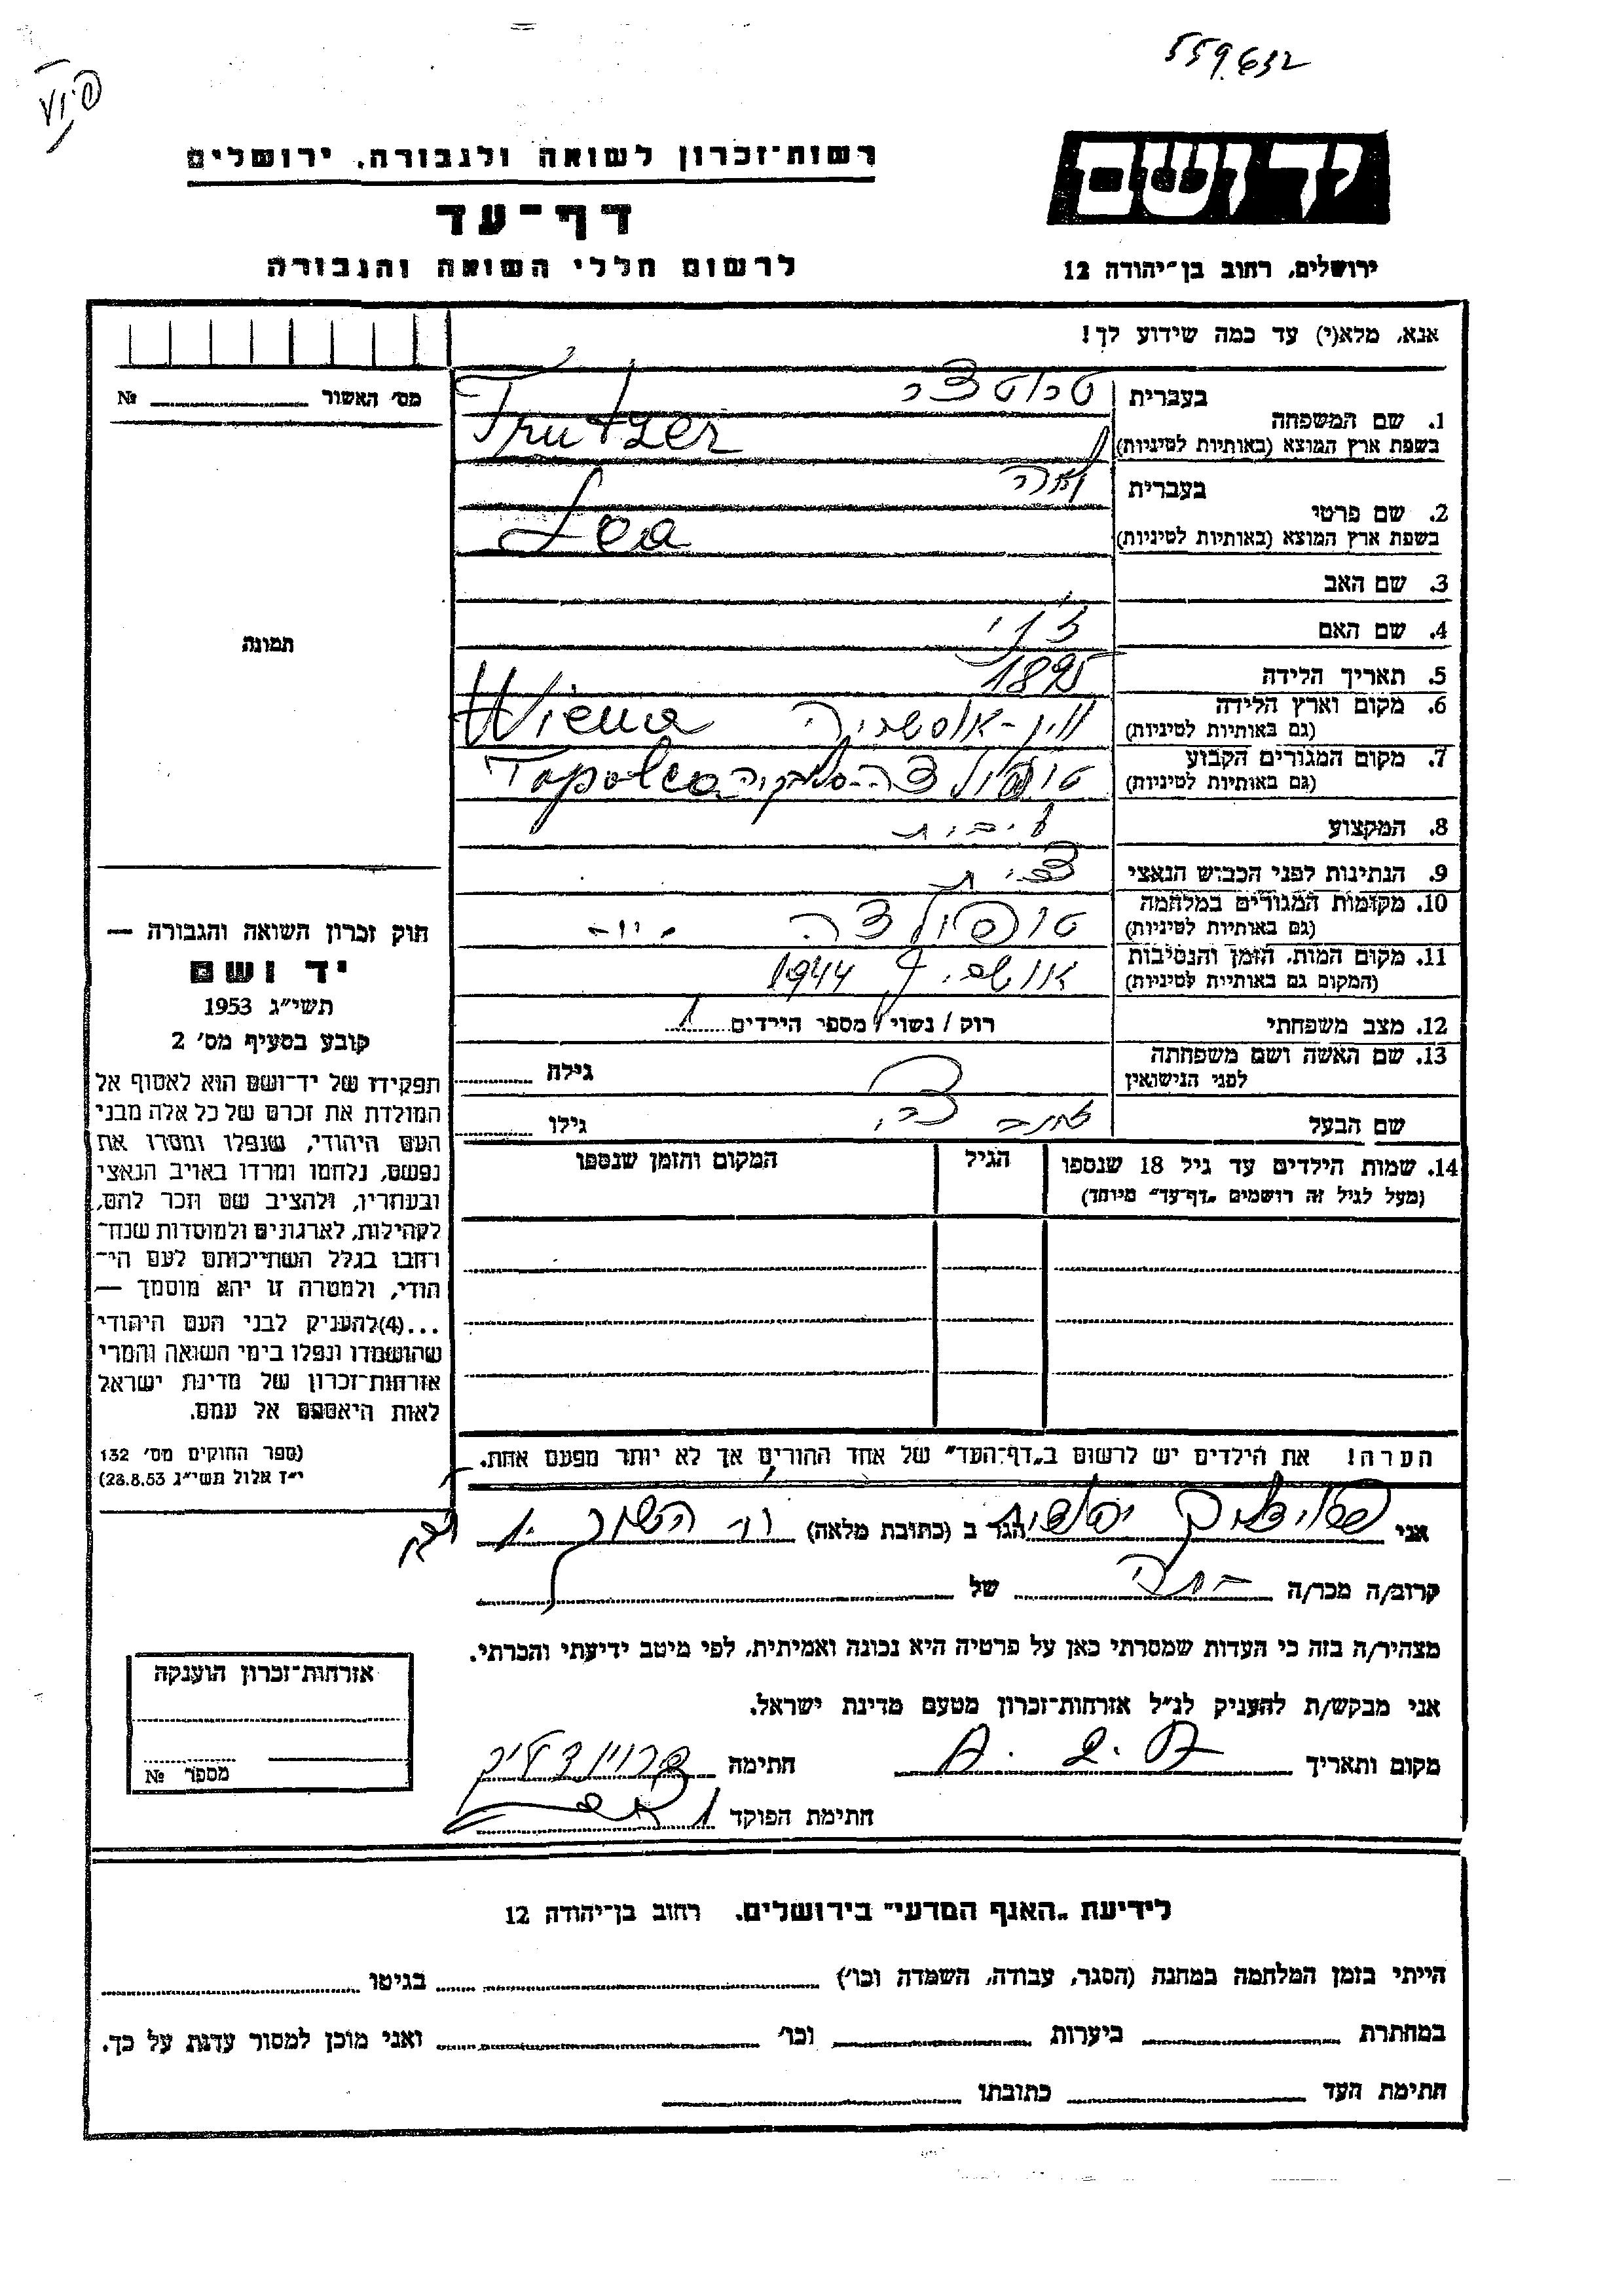 559.632
רשות־זכרון לשואה ולגבורה, ירושלים
דף־עד
לרשום חללי השואה והגבורה
יד ושם
ירושלים, רחוב בן־יהודה 12
אנא, מלא(י) עד כמה שידוע לך!
מס' האשור № 
תמונה
1. שם המשפחה
בעברית
טרוטצר
בשפת ארץ המוצא (באותיות לטיניות)
Trutzer
2. שם פרטי
בעברית
לאה
בשפת ארץ המוצא (באותיות לטיניות)
Lea
3. שם האב
4. שם האם
5. תאריך הלידה 1895
6. מקום וארץ הלידה
(גם באותיות לטיניות)
וין-אוסטריה Wiena
7. מקום המגורים הקבוע
(גם באותיות לטיניות)
8. המקצוע
9. הנתינות לפני הכבוש הנאצי
10. מקומות המגורים במלחמה
(גם באותיות לטיניות)
11. מקום המות, הזמן והנסיבות
(המקום גם באותיות לטיניות)
1944
12. מצב משפחתי רוק / נשוי / מספר הילדים 1
13. שם האשה ושם משפחתה
לפני הנישואין
גילה
שם הבעל
גילו
14. שמות הילדים עד גיל 18 שנספו
(מעל לגיל זה רושמים „דף־עד" מיוחד)
הגיל
המקום והזמן שנספו
הערה! את הילדים יש לרשום ב„דף־העד" של אחד ההורים אך לא יותר מפעם אחת.
חוק זכרון השואה והגבורה —
יד ושם
תשי"ג 1953
קובע בסעיף מס' 2
תפקידו של יד־ושם הוא לאסוף אל
המולדת את זכרם של כל אלה מבני
העם היהודי, שנפלו ומסרו את
נפשם, נלחמו ומרדו באויב הנאצי
ובעוזריו, ולהציב שם וזכר להם,
לקהילות, לארגונים ולמוסדות שנח־
רחבו בגלל השתייכותם לעם הי־
הודי, ולמטרה זו יהא מוסמך —
...(4)להעניק לבני העם היהודי
שהושמדו ונפלו בימי השואה והמרי
אזרחות־זכרון של מדינת ישראל
לאות היאספם אל עמם.
(ספר החוקים מס' 132
י"ז אלול תשי"ג 28.8.53)
אני
הגר ב (כתובת מלאה)
קרוב/ה מכר/ה
של
מצהיר/ה בזה כי העדות שמסרתי כאן על פרטיה היא נכונה ואמיתית, לפי מיטב ידיעתי והכרתי.
אני מבקש/ת להעניק לנ"ל אזרחות־זכרון מטעם מדינת ישראל.
מקום ותאריך
חתימה
חתימת הפוקד
אזרחות־זכרון הוענקה
מספר №
לידיעת „האגף המדעי" בירושלים, רחוב בן־יהודה 12
הייתי בזמן המלחמה במחנה (הסגר, עבודה, השמדה וכו') בגיטו
במחתרת ביערות וכו' ואני מוכן למסור עדות על כך.
חתימת העד כתובתו